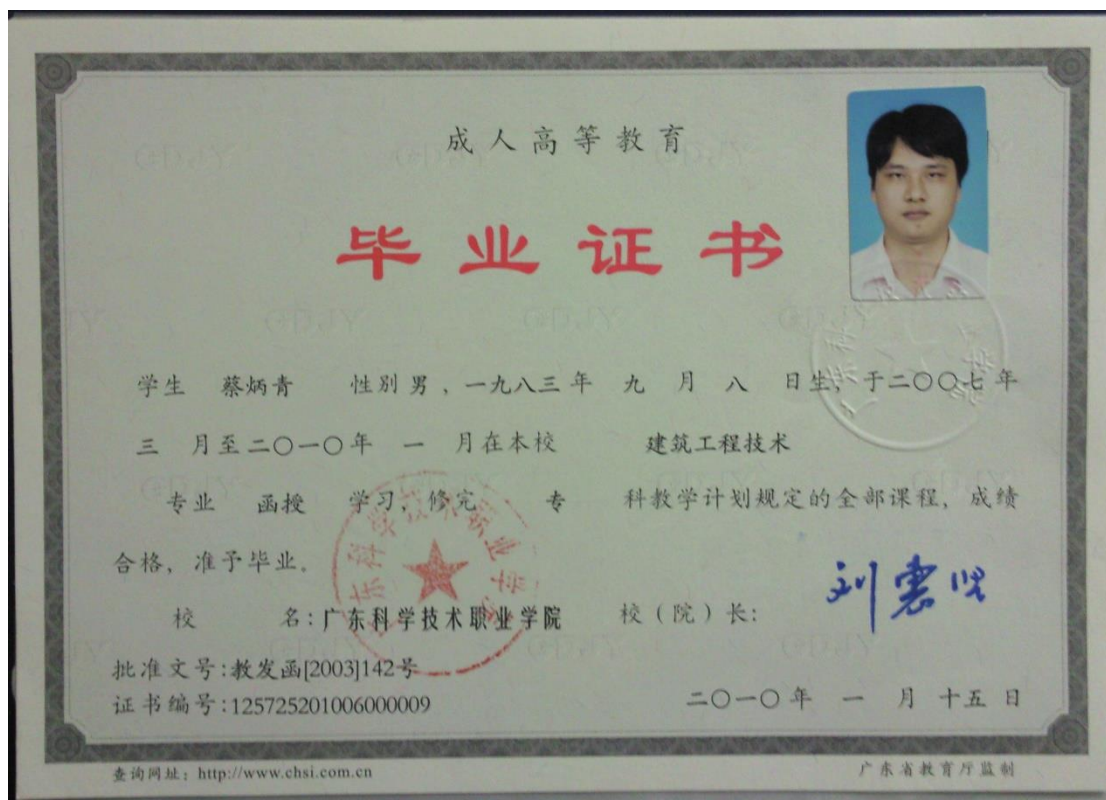 成人高等教育
毕业证书
学生 蔡炳青 性别 男，一九八三年 九 月 八 日生，于二〇〇七年
三 月至二〇一〇年 一 月在本校 建筑工程技术
专业 函授 学习，修完 专 科教学计划规定的全部课程，成绩
合格，准予毕业。
校 名：广东科学技术职业学院 校（院）长：
批准文号：教发函[2003]142号
证书编号：125725201006000009 二〇一〇年 一 月 十五 日
查询网址：http://www.chsi.com.cn 广东省教育厅监制